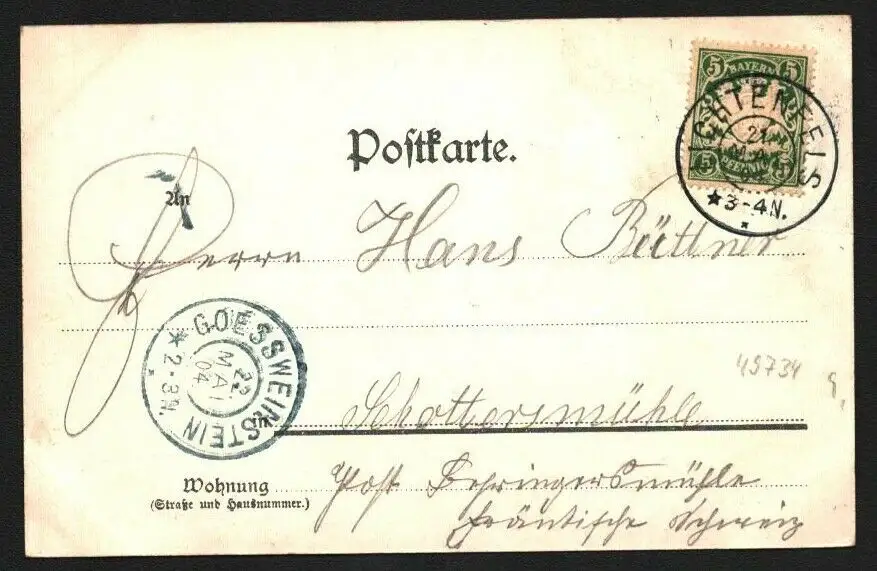 5 BAYERN 5
5 PFENNIG 5
LICHTENFELS
21
MAI
★3-4N.
Postkarte.
An
Herrn Hans Büttner
GOESSWEINSTEIN
22
MAI
04
★ 2-3N.
49734
in Schottersmühle
Wohnung Post Behringersmühle
(Straße und Hausnummer.)
Fränkische Schweiz